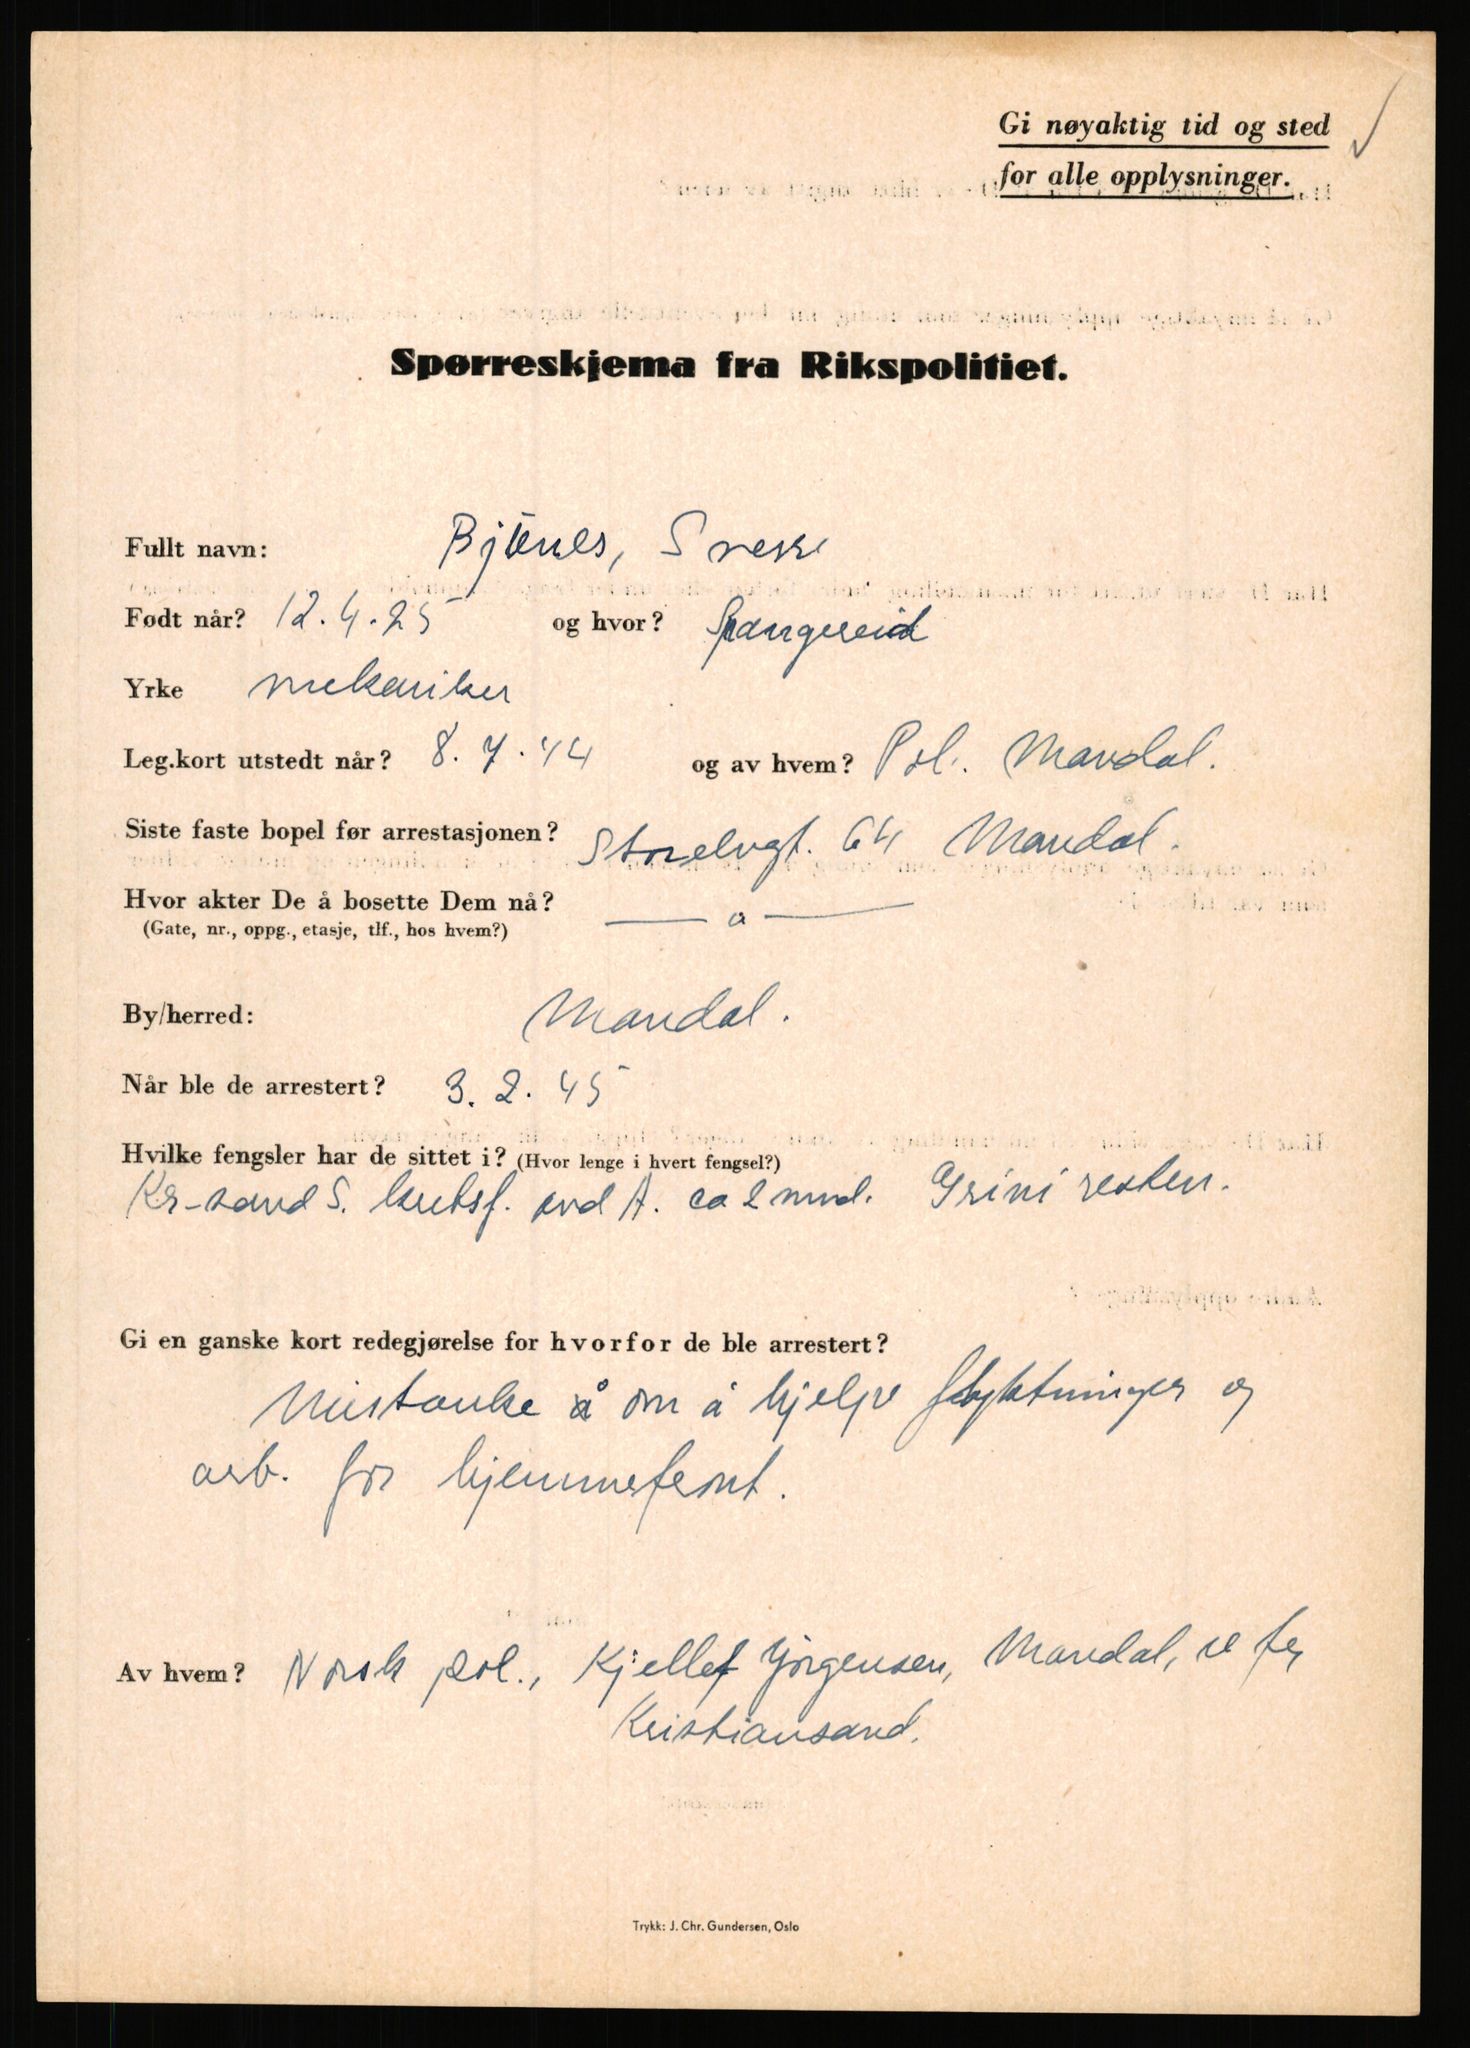 Gi nøyaktig tid og sted
for alle opplysninger.
Spørreskjema fra Rikspolitiet.
Fullt navn: Bjönes, Sverre
Født når? 12.4.25 og hvor? Spangereid
Yrke mekaniker
Leg.kort utstedt når? 8.7.44 og av hvem? Pol. Mandal.
Siste faste bopel før arrestasjonen? Storelvgt. 64 Mandal.
Hvor akter De å bosette Dem nå? — a —
(Gate, nr., oppg., etasje, tlf., hos hvem?)
By/herred: Mandal.
Når ble de arrestert? 3.2.45
Hvilke fengsler har de sittet i? (Hvor lenge i hvert fengsel?)
Kr-sand S. kretsf. avd A. ca 2 mnd. Grini resten.
Gi en ganske kort redegjørelse for hvorfor de ble arrestert?
Mistanke å om å hjelpe flyktninger og
arb. for hjemmefront.
Av hvem? Norsk pol., Kjellef Jörgensen, Mandal,
Kristiansand.
Trykk: J. Chr. Gundersen, Oslo